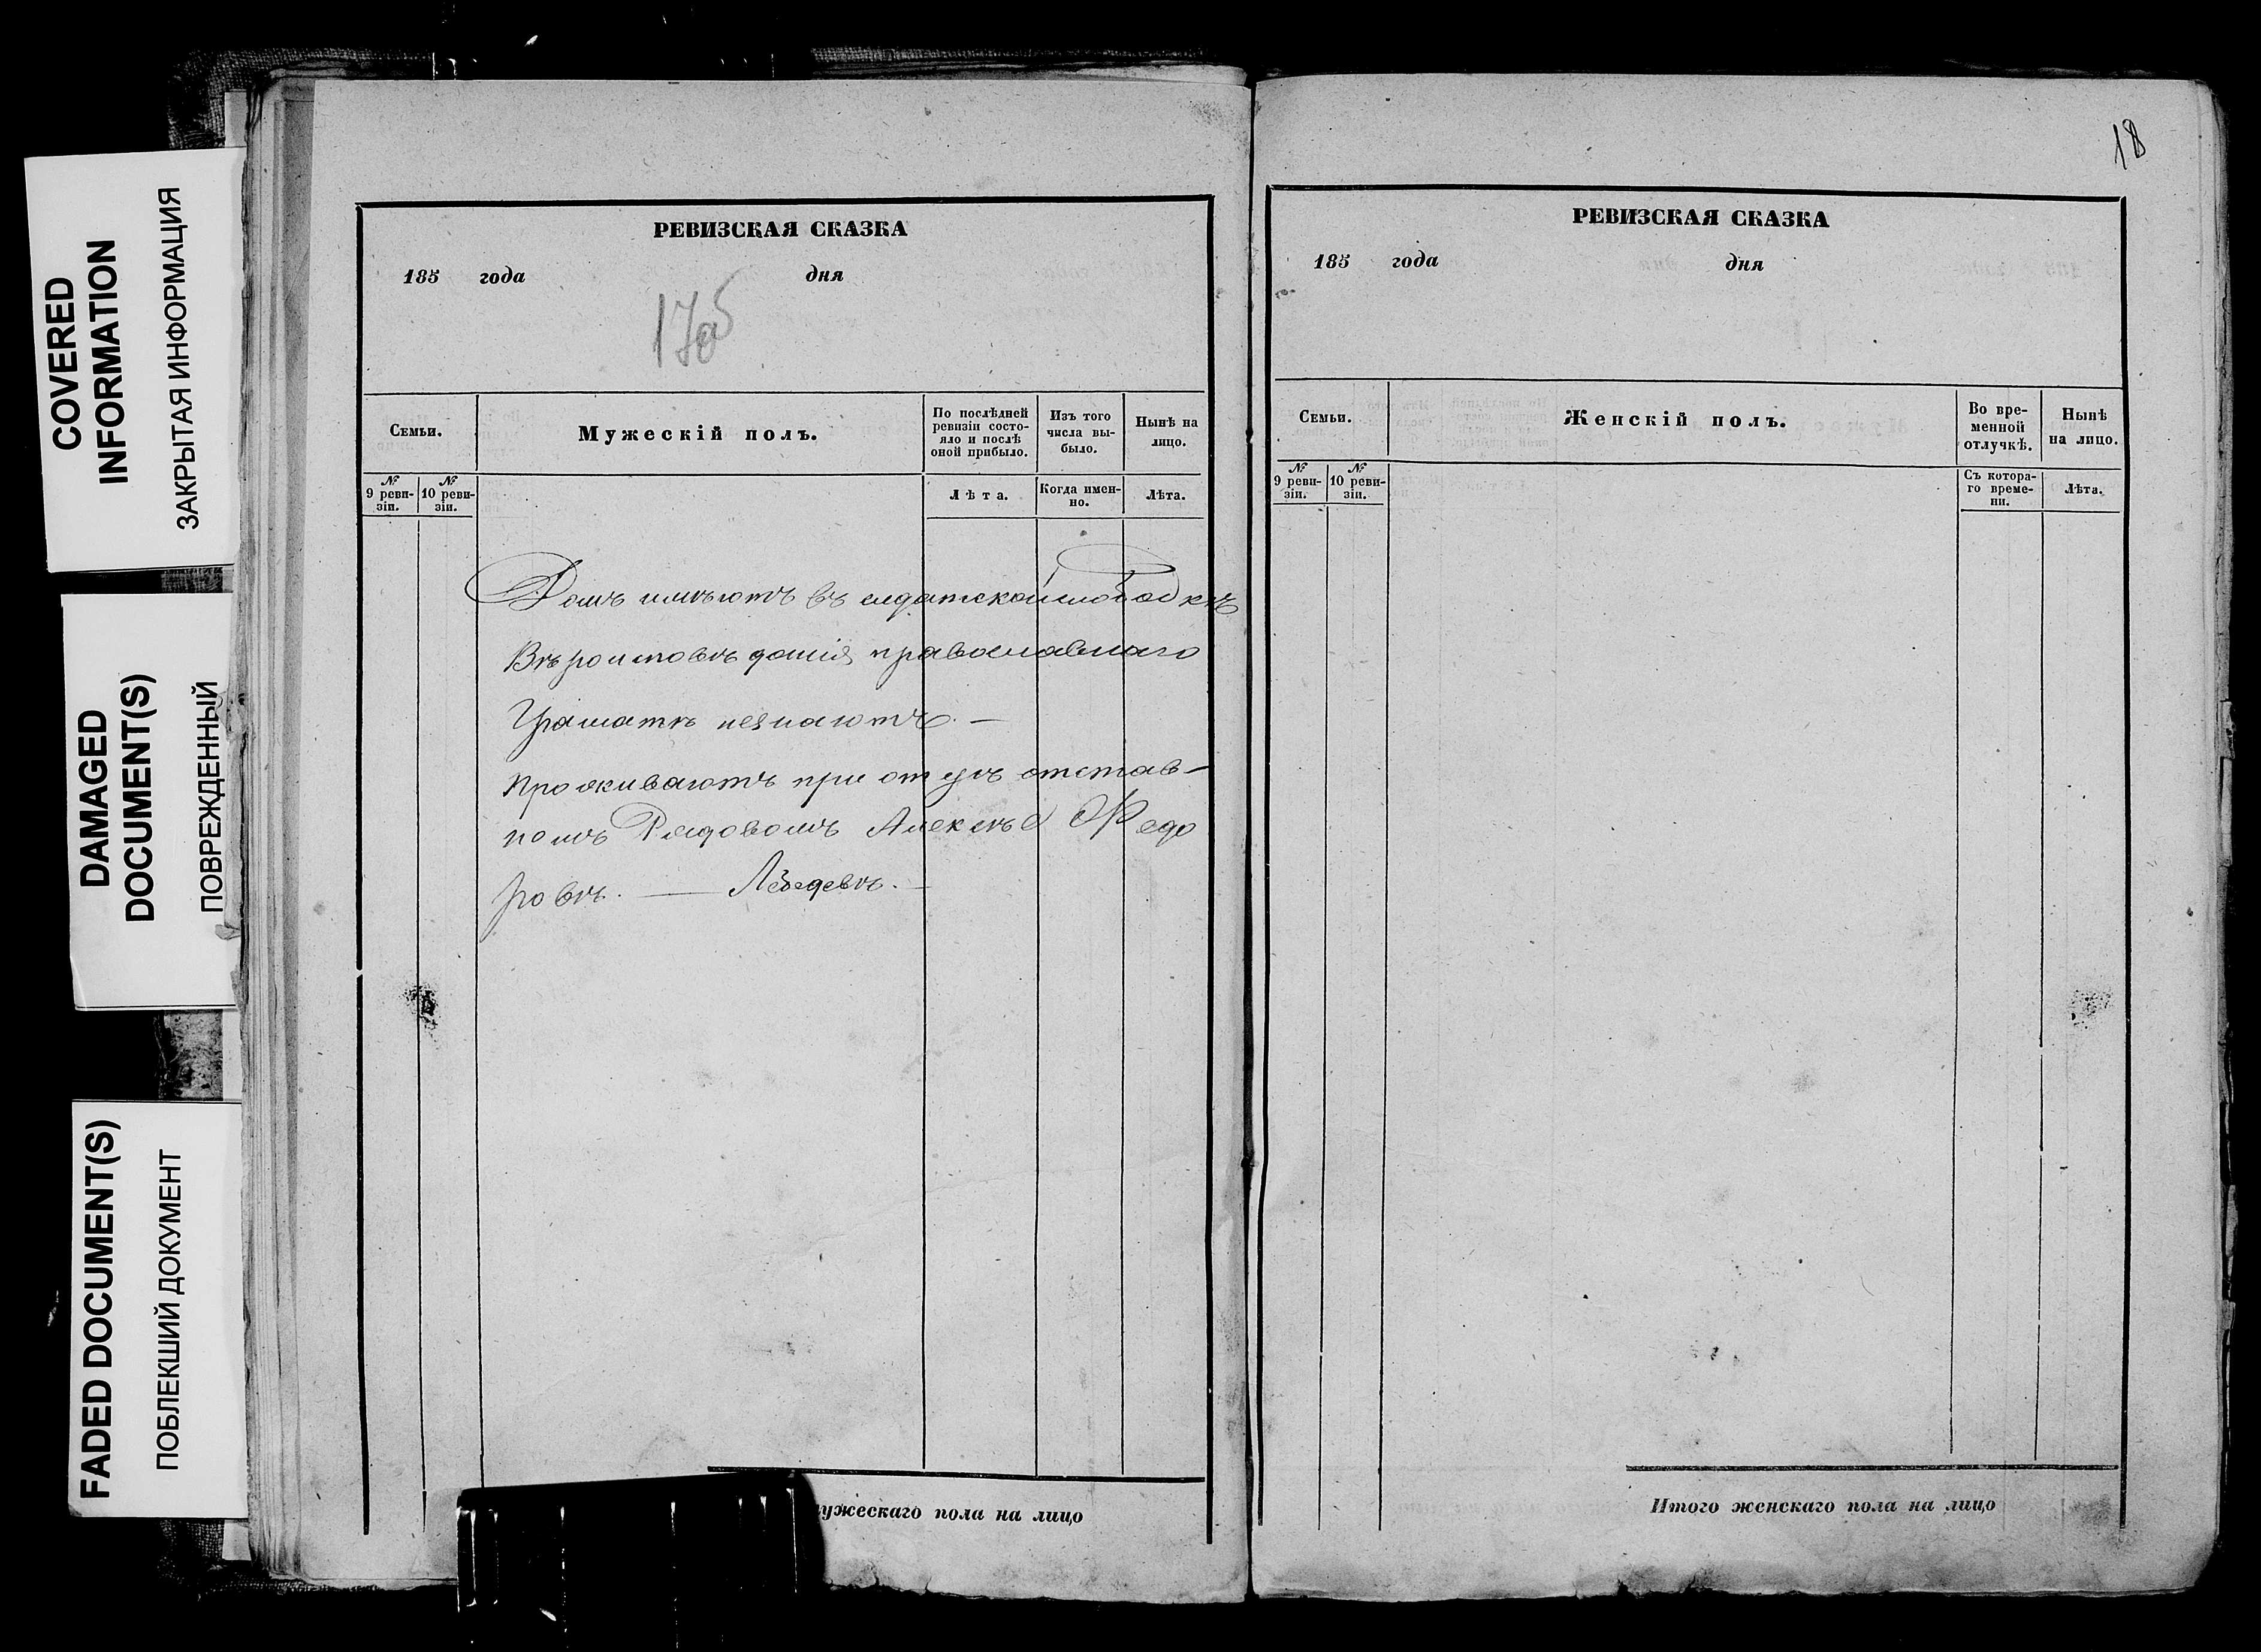 COVERED
INFORMATION
ЗАКРЫТАЯ ИНФОРМАЦИЯ
DAMAGED
DOCUMENT(S)
ПОВРЕЖДЕННЫЙ
FADED DOCUMENT(S)
ПОБЛЕКШИЙ ДОКУМЕНТ
РЕВИЗСКАЯ СКАЗКА
185 года дня
Семьи.
Мужескій полъ.
По послѣдней
ревизіи состо-
яло и послѣ
оной прибыло.
Изъ того
числа вы-
было.
Нынѣ на
лицо.
№
9 реви-
зіи.
№
10 реви-
зіи.
Лѣта.
Когда имен-
но.
Лѣта.
Домъ имѣютъ въ слдатской слободкѣ
Вѣроисповѣданія православнаго
Грамотѣ незнаютъ. —
Проживаютъ при отцѣ отстав-
номъ Рядовомъ Алексѣе Федо
ровѣ. — Лебедевѣ. —
ужескаго пола на лицо
18
РЕВИЗСКАЯ СКАЗКА
185 года дня
Семьи.
Женскій полъ.
Во вре-
менной
отлучкѣ.
Нынѣ
на лицо.
№
9 реви-
зіи.
№
10 реви-
зіи.
Съ котора-
го време-
ни.
Лѣта.
Итого женскаго пола на лицо